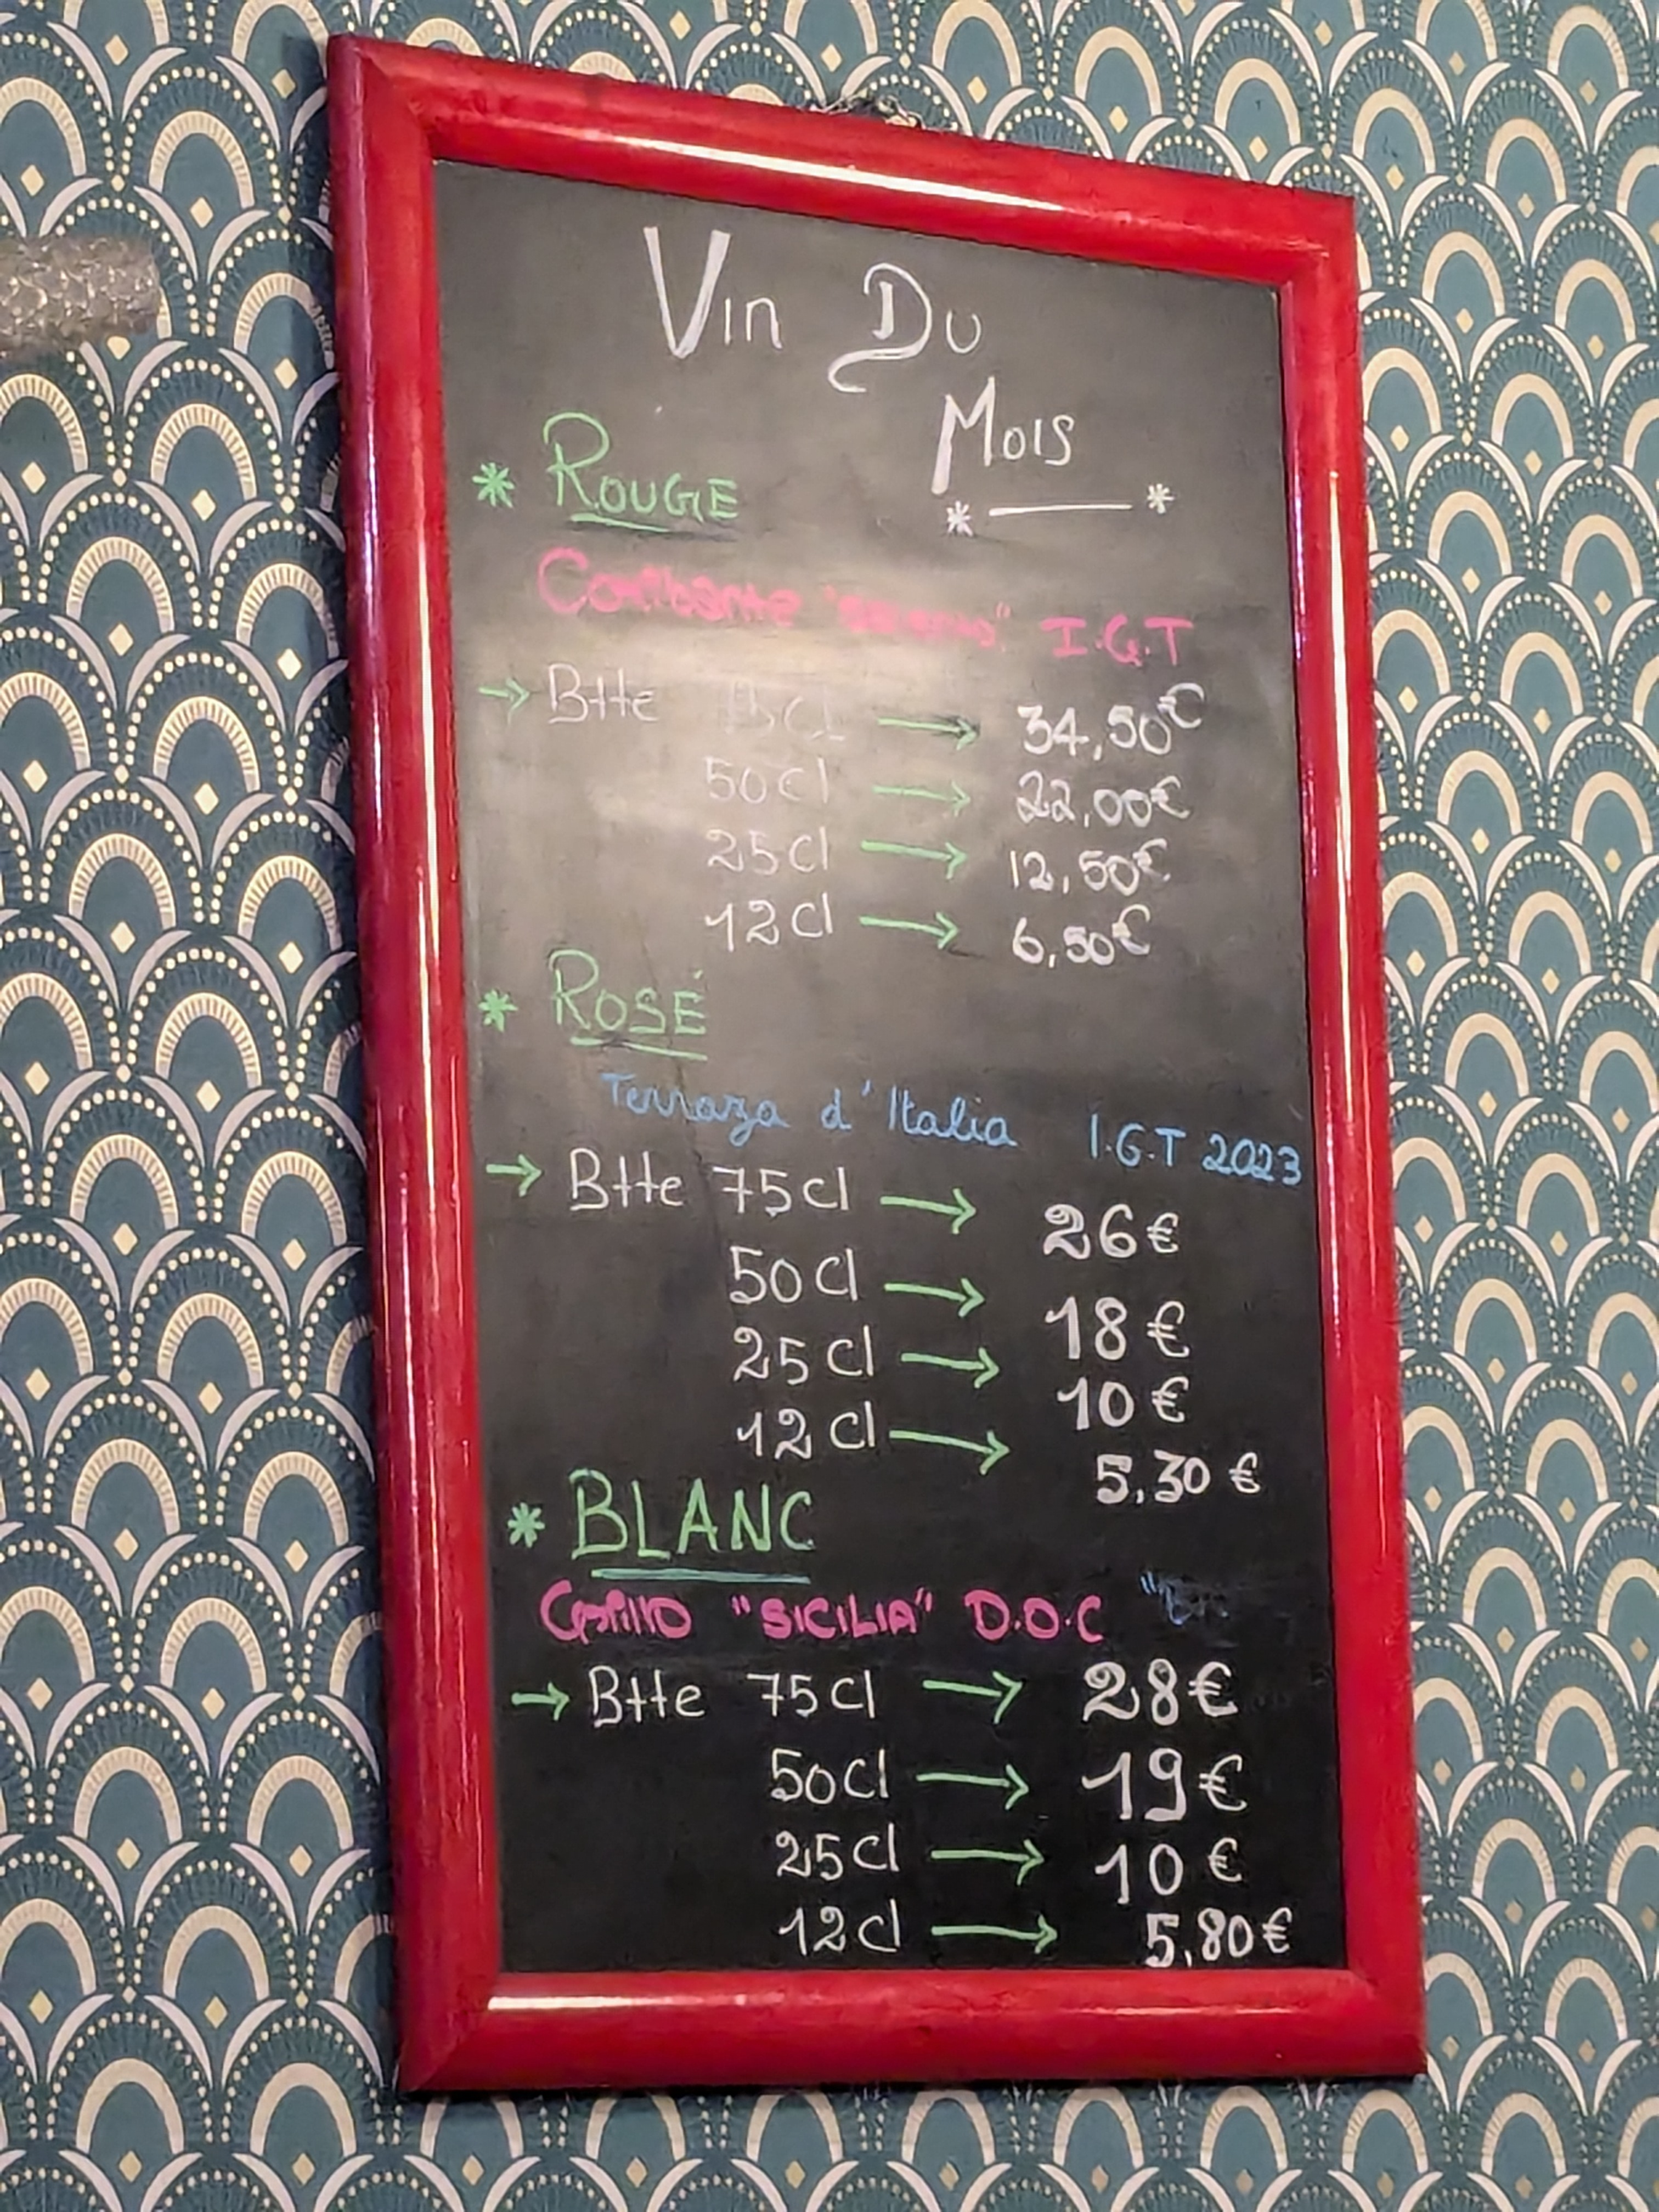 Vin Du
Mois
* Rouge
I.G.T
→ Btte → 34,50€
50cl → 22,00€
25cl → 12,50€
12cl → 6,50€
* Rosé
Terraza d'Italia I.G.T 2023
→ Btte 75cl → 26€
50cl → 18€
25cl → 10€
12cl → 5,30€
* BLANC
Grillo "SICILIA" D.O.C
→ Btte 75cl → 28€
50cl → 19€
25cl → 10€
12cl → 5,80€